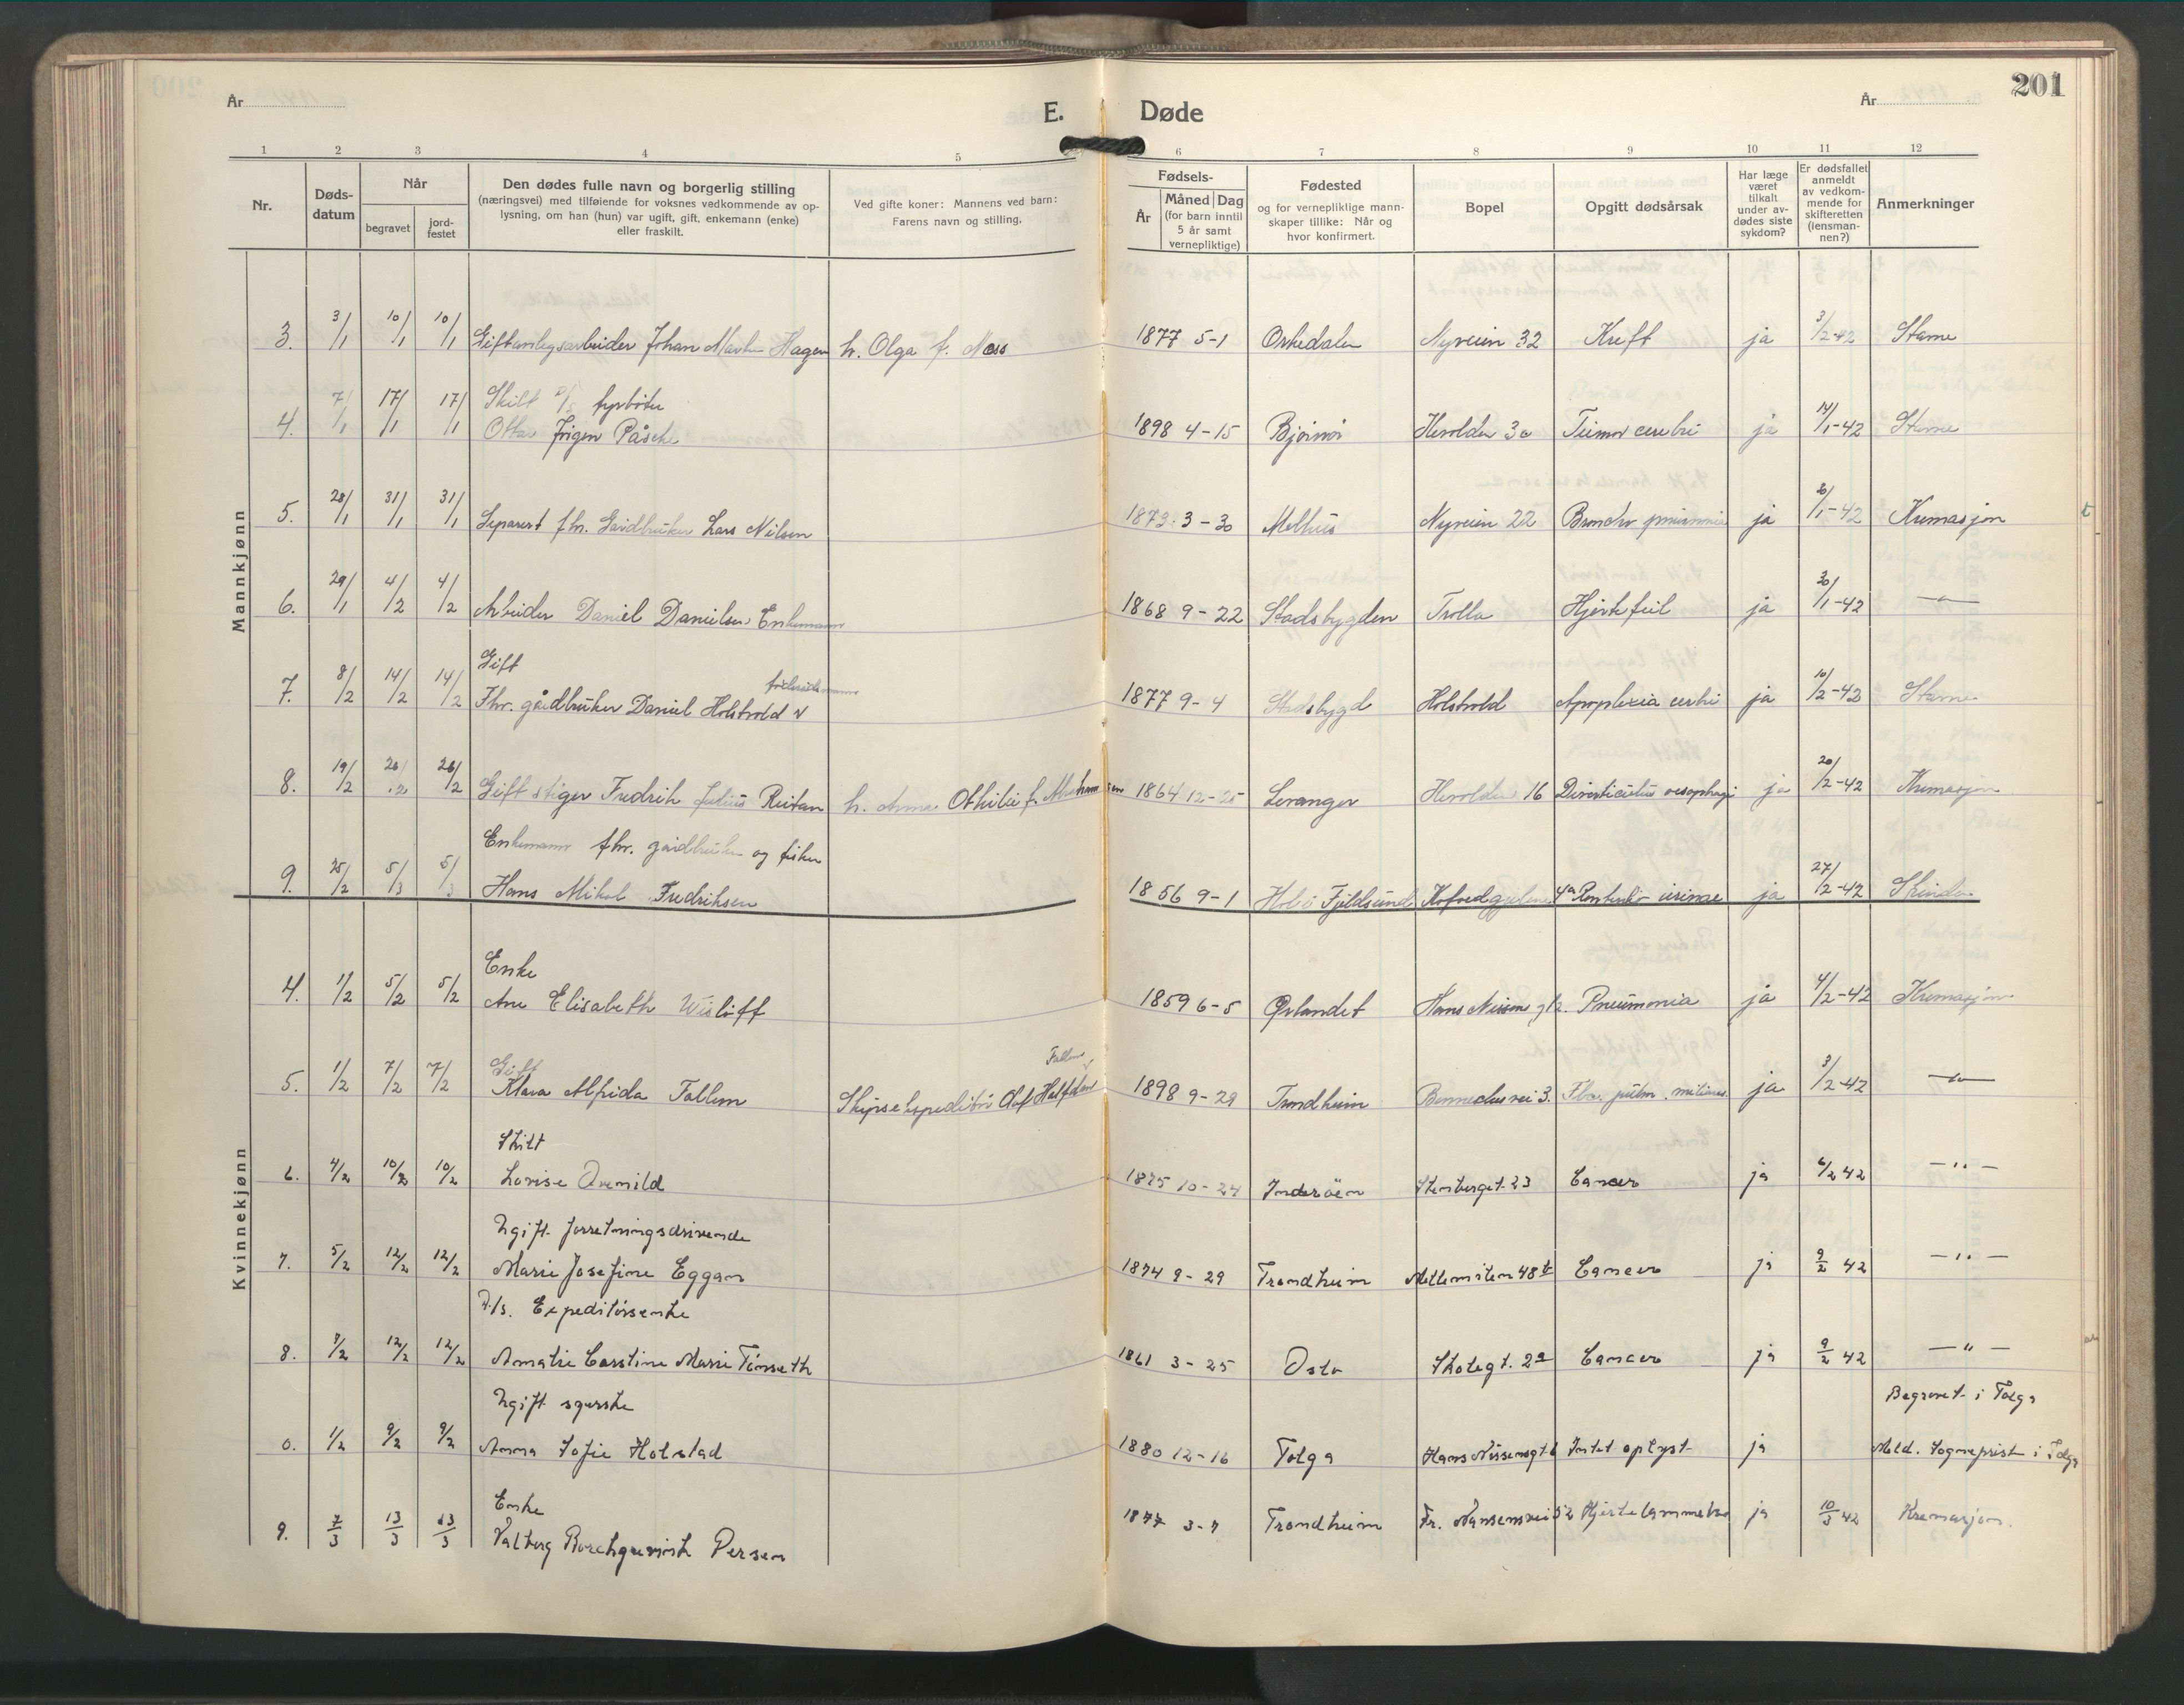 201
År
E.
Døde
År
1 2 3 4 5 6 7 8 9 10 11 12
Nr.
Døds-datum
Når
begravet
jord-festet
Den dødes fulle navn og borgerlig stilling
(næringsvei) med tilføiende for voksnes vedkommende av op-
lysning, om han (hun) var ugift, gift, enkemann (enke)
eller fraskilt.
Ved gifte koner: Mannens ved barn:
Farens navn og stilling.
Fødsels-
År
Måned Dag
(for barn inntil
5 år samt
vernepliktige)
Fødested
og for vernepliktige mann-
skaper tillike: Når og
hvor konfirmert.
Bopel
Opgitt dødsårsak
Har læge
været
tilkalt
under av-
dødes siste
sykdom?
Er dødsfallet
anmeldt
av vedkom-
mende for
skifteretten
(lensman-
nen?)
Anmerkninger
Mannkjønn
3. 3/1 10/1 10/1 Gift anlegsarbeider Johan Martin Hagen h. Olga f. Moss 1877 5-1 Orkedalen Nyveien 32 Kreft ja 3/2-42 Stavne
Skilt fyrbøter
4. 7/1 17/1 17/1 Ottar Jørgen Påsche 1898 4-15 Bjørnør 3a Tumor cerebri ja 14/1-42 Stavne
5. 28/1 31/1 31/1 Separert fhv. Gårdbruker Lars Nilsen 1873 3-30 Melhus Nyveien 22 ja /1-42 Kremasjon
6. 29/1 4/2 4/2 Arbeider Daniel Danielsen Enkemann 1868 9-22 Stadsbygden Trolla Hjertefeil ja 30/1-42 —"—
Gift
7. 8/2 14/2 14/2 Fhv. gårdbruker Daniel Holstvold 1877 9-4 Stadsbygd Holstvold Apoplexia cerebri ja 10/2-42 Stavne
8. 19/2 26/2 26/2 Gift stiger Fredrik Julius Reitan h. Anna Othilie f. 1864 12-25 Levanger 16 ja 20/2-42 Kremasjon
Enkemann fhv. gårdbruker og fisker
9. 25/2 5/3 5/3 Hans Mikal Fredriksen 1856 9-1 Hol i Fjeldsund ja 27/2-42
Kvinnekjønn
Enke
4. 1/2 5/2 5/2 Ane Elisabeth Wisløff 1859 6-5 Ørlandet Hans Nissens gt Pneumonia ja 4/2-42 Kremasjon
Gift
5. 1/2 7/2 7/2 Klara Alfrida Fallem Skipsekspeditør Olaf Halfdan Fallem 1898 9-29 Trondheim 3. ja 3/2-42 —"—
Skilt
6. 4/2 10/2 10/2 Lovise Overvild 1875 10-24 Inderøen Stenberget. 23 Cancer ja 6/2 42 —"—
Ugift forretningsdrivende
7. 5/2 12/2 12/2 Marie Josefine Eggan 1874 9-29 Trondheim Mellemilen 48 b Cancer ja 9/2 42 —"—
D/s. Expeditørsenke
8. 7/2 12/2 12/2 Amalie Carstine Marie Tønseth 1861 3-25 Oslo Skolegt. 2a Cancer ja 9/2 42 —"—
Ugift syerske Begravet i Tolga
0. 1/2 9/2 9/2 Anna Sofie Holstad 1880 12-16 Tolga Hans Nissensgt. 6 Intet oplyst ja Meld. Sogneprest i Tolga
Enke
9. 7/3 13/3 13/3 Valborg Borchgrevink Persen 1877 3-7 Trondheim Fr. Nansensvei 52 Hjertelammelse ja 10/3 42 Kremasjon.